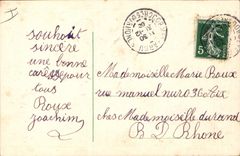 souhait
sincère
une bonne
pour
tous
Roux
joachim
5
Mademoiselle Marie Roux
rue manuel nuro 36 Aix
ches Mademoiselle durend
B D Rhone